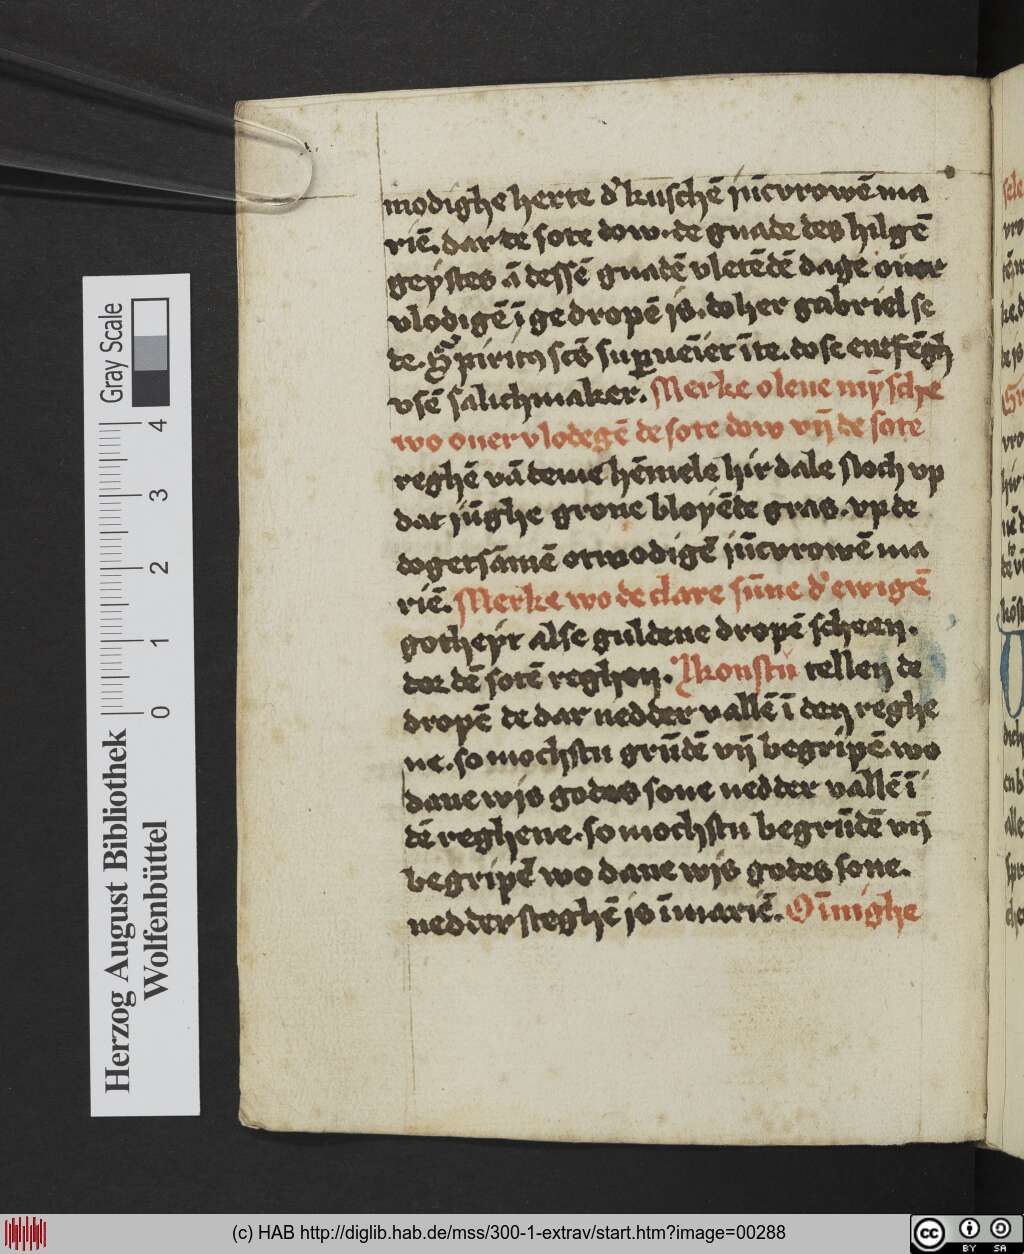 modighe herte d' kuschē jūcvrowē ma
riē. dar de sote dow. de gnade des hilgē
geystes ā dessē gnadē vletēdē dage ouer
vlodigē ī ge dropē js. do her gabriel se
de. Spiritus scūs superueīet ī te. do se entfēgh
vsē salichmaker. Merke o leue mȳsche
wo ouer vlodegē de sote dow vn̄ de sote
reghē vā deme hēmele hir dale sloch vp
dat jūghe grone bloyēde gras. vp de
dogetsāmē otmodigē jūcvrowē ma
riē. Merke wo de clare sūne d' ewigē
gotheyt alse guldene dropē scheen.
dor dē sotē reghen. Konstu tellen de
dropē de dar nedder vallē ī den reghe
ne. so mochstu grūdē vn̄ begripē. wo
dane wis godes sone nedder vallē ī
dē reghene. so mochstu begrūdē vn̄
begripē wo dane wis godes sone.
nedder steghē js ī mariē. O īnighe
Gray Scale
0 1 2 3 4
Herzog August Bibliothek
Wolfenbüttel
(c) HAB http://diglib.hab.de/mss/300-1-extrav/start.htm?image=00288
cc BY SA